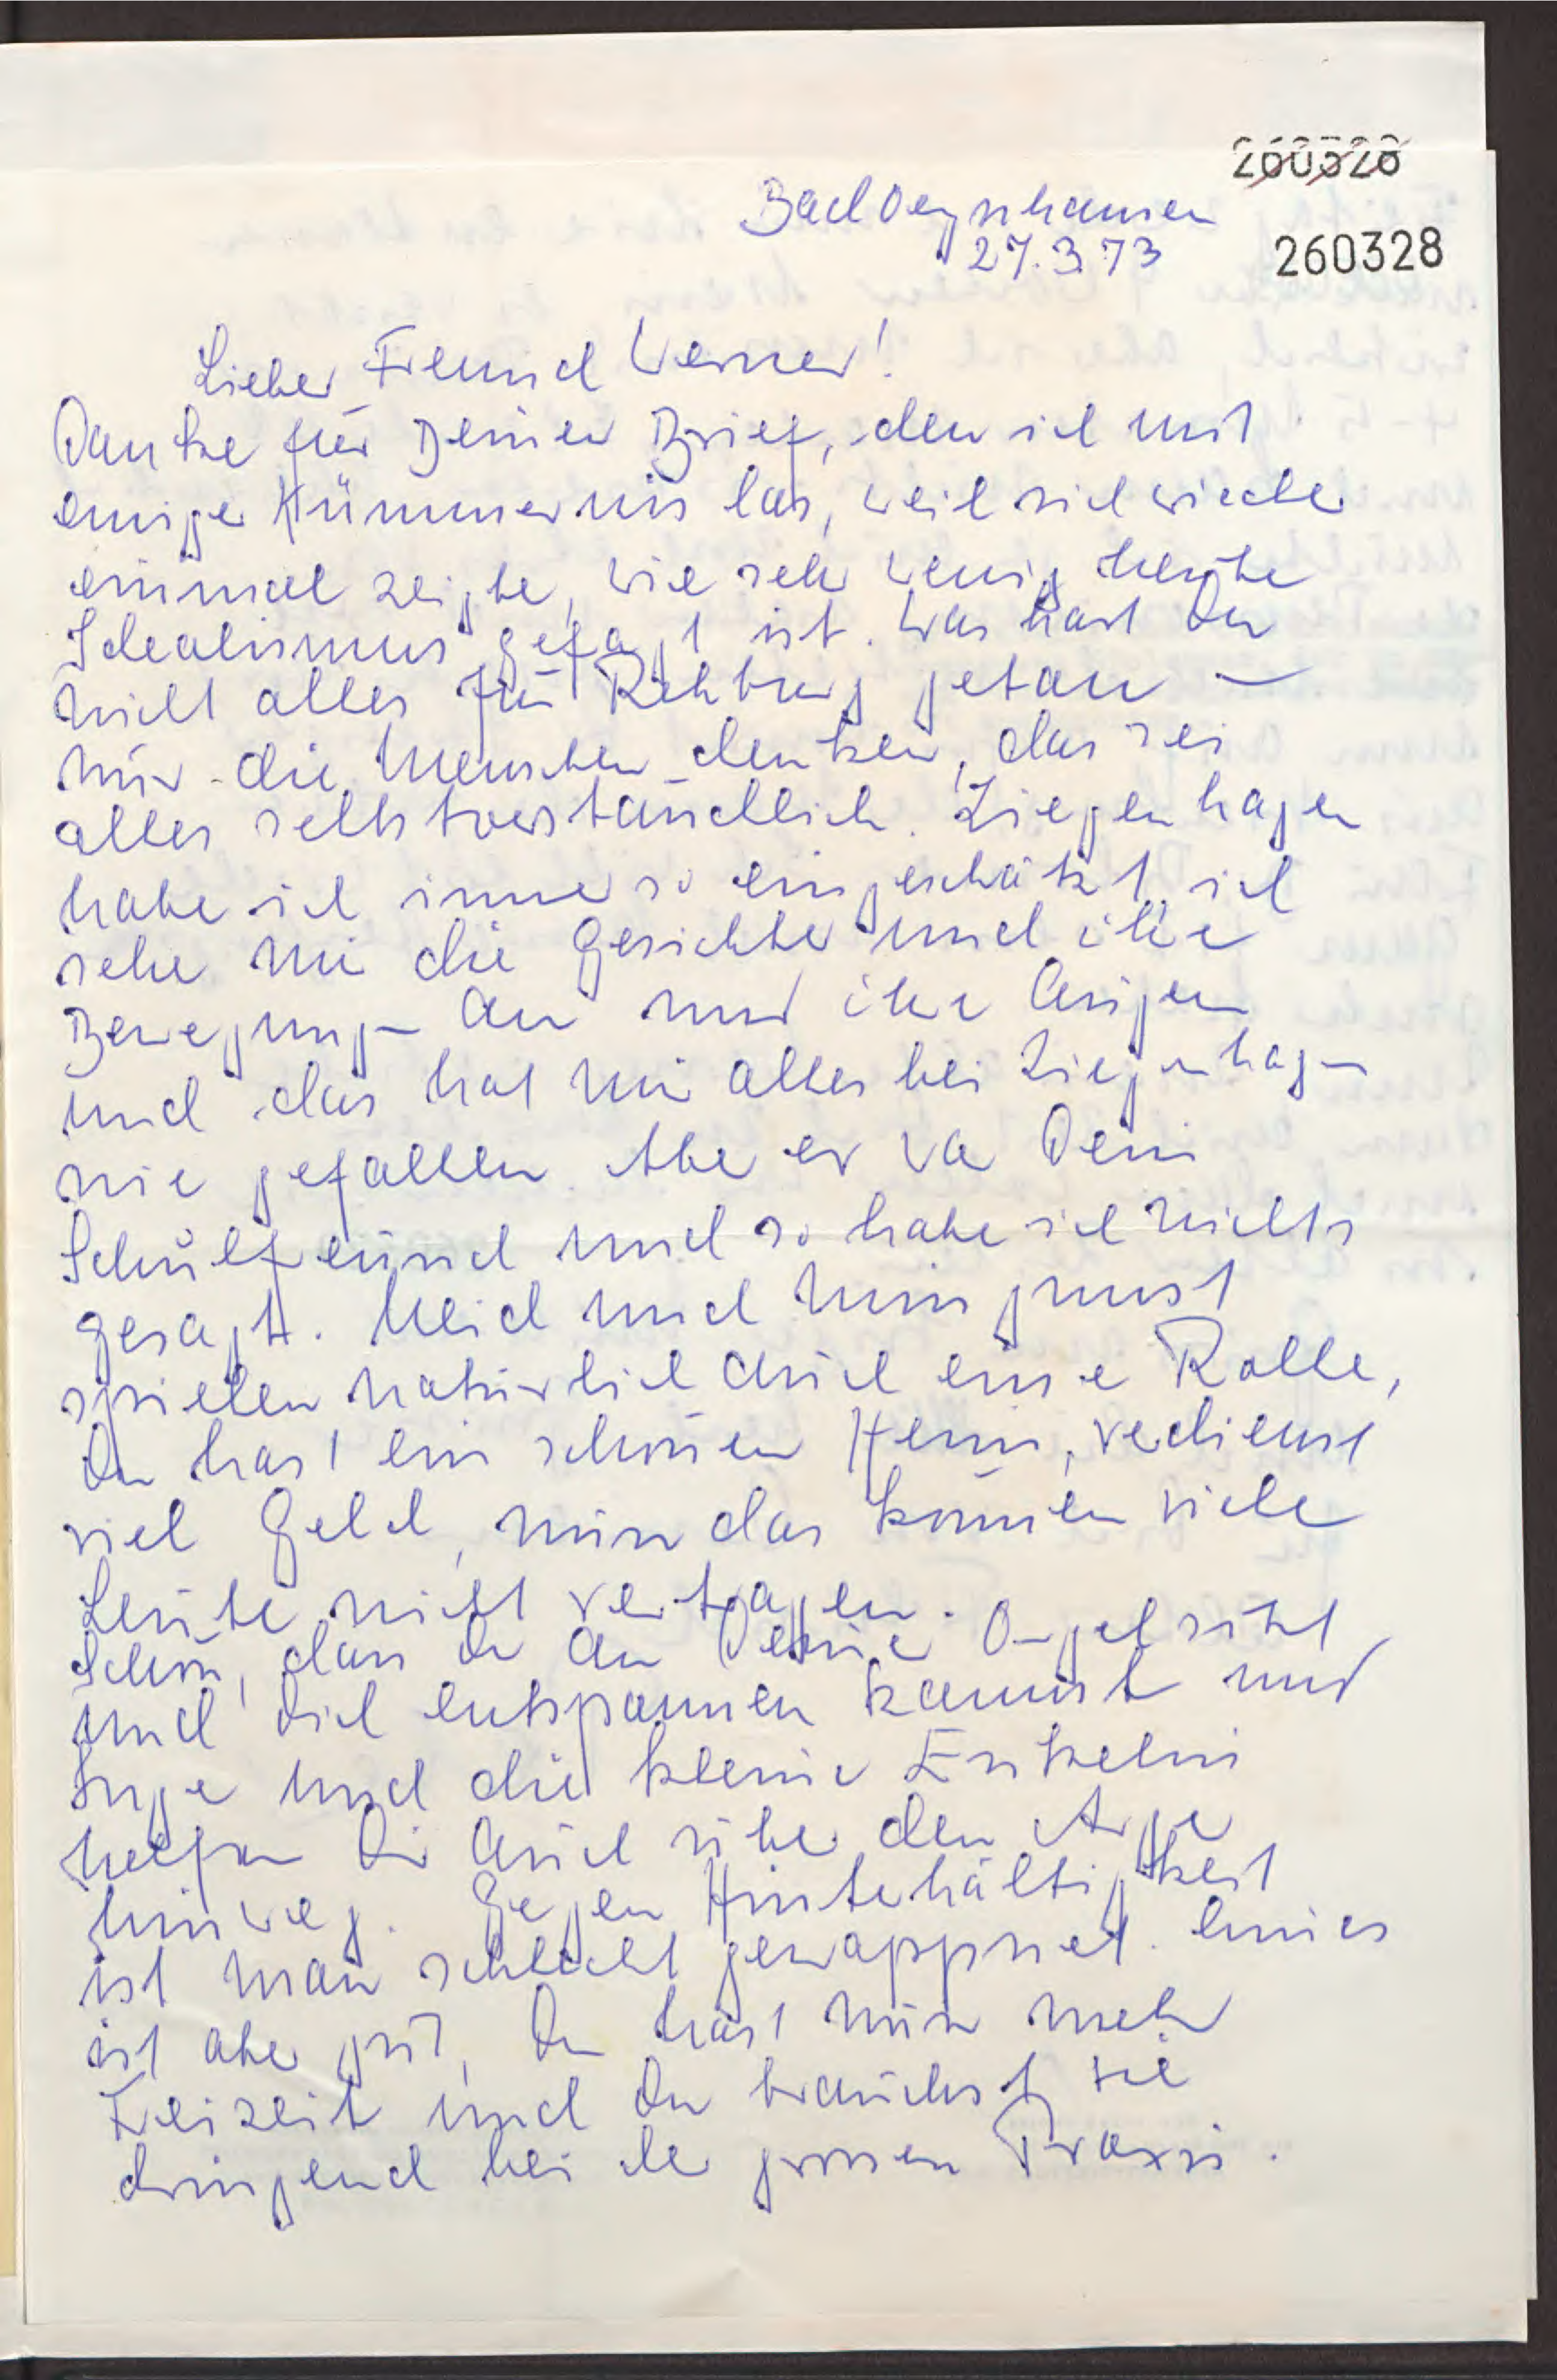 260328
Bad Oeynhausen
27.3.73
260328
Lieber Freund Werner!
Danke für Deinen Brief, den ich mit
einiger Kümmernis las, weil sich wieder
einmal zeigte, wie sehr wenig heute
Idealismus gefragt ist. Was hast Du
nicht alles für Rehburg getan –
nur die Menschen denken, das sei
alles selbstverständlich. Ziegenhagen
habe ich immer so eingeschätzt, ich
sehe mir die Gesichter und ihre
Bewegungen an und ihre Augen
und das hat mir alles bei Ziegenhagen
nie gefallen. Aber er war Dein
Schulfreund und so habe ich nichts
gesagt. Neid und Missgunst
spielen natürlich auch eine Rolle,
Du hast ein schönen Heim, verdienst
viel Geld, nun das können viele
Leute nicht vertragen.
Schön, dass Du an Deine Orgel sitzt
und Dich entspannen kannst und
Inge und die kleine Enkelin
helfen Dir auch über den Ärger
hinweg. Gegen Hinterhältigkeit
ist man schlecht gewappnet. Eines
ist aber gut, Du hast nun mehr
Freizeit und Du brauchst sie
dringend bei der grossen Praxis.